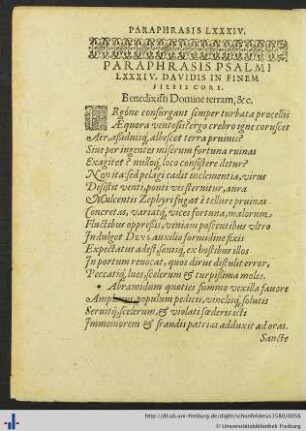 PARAPHRASIS LXXXIV.
PARAPHRASIS PSALMI
LXXXIV. DAVIDIS IN FINEM
FILIIS CORE.
Benedixisti Domine terram, &c.
ERgóne consurgant semper turbata procellis
Æquora ventosis? ergo crebro igne coruscet
Aer, assiduisq́, albescet terra pruinis?
Siue per ingentes miserum fortuna ruinas
Exagitet? nulloq́, loco consistere detur?
Non ita: sed pelagi cadit inclementia, virus
Desistit venti, ponti vis sternitur, aura
Mulcentis Zephyri fugat è tellure pruinas
Concretas, variatq́, vices fortuna, malorum
Fluctibus oppressis, veniam poscentibus vltro
Indulget DEVS auxilio formidine fixis
Expectatus adest, sæuus, ex hostibus illos
In portum reuocat, quos dirus distulit error,
Peccatiq́, lues, scelerum & turpissima moles.
Abramidum quoties summo vexilla fauore
populum pedicis, vinclisq́, solutis
Seruitij, scelerum, & violati fœderis icti
Immemorem & fraudis patrias adduxit ad oras.
Sancte
http://dl.ub.uni-freiburg.de/diglit/schonfelderus1580/0056
© Universitätsbibliothek Freiburg